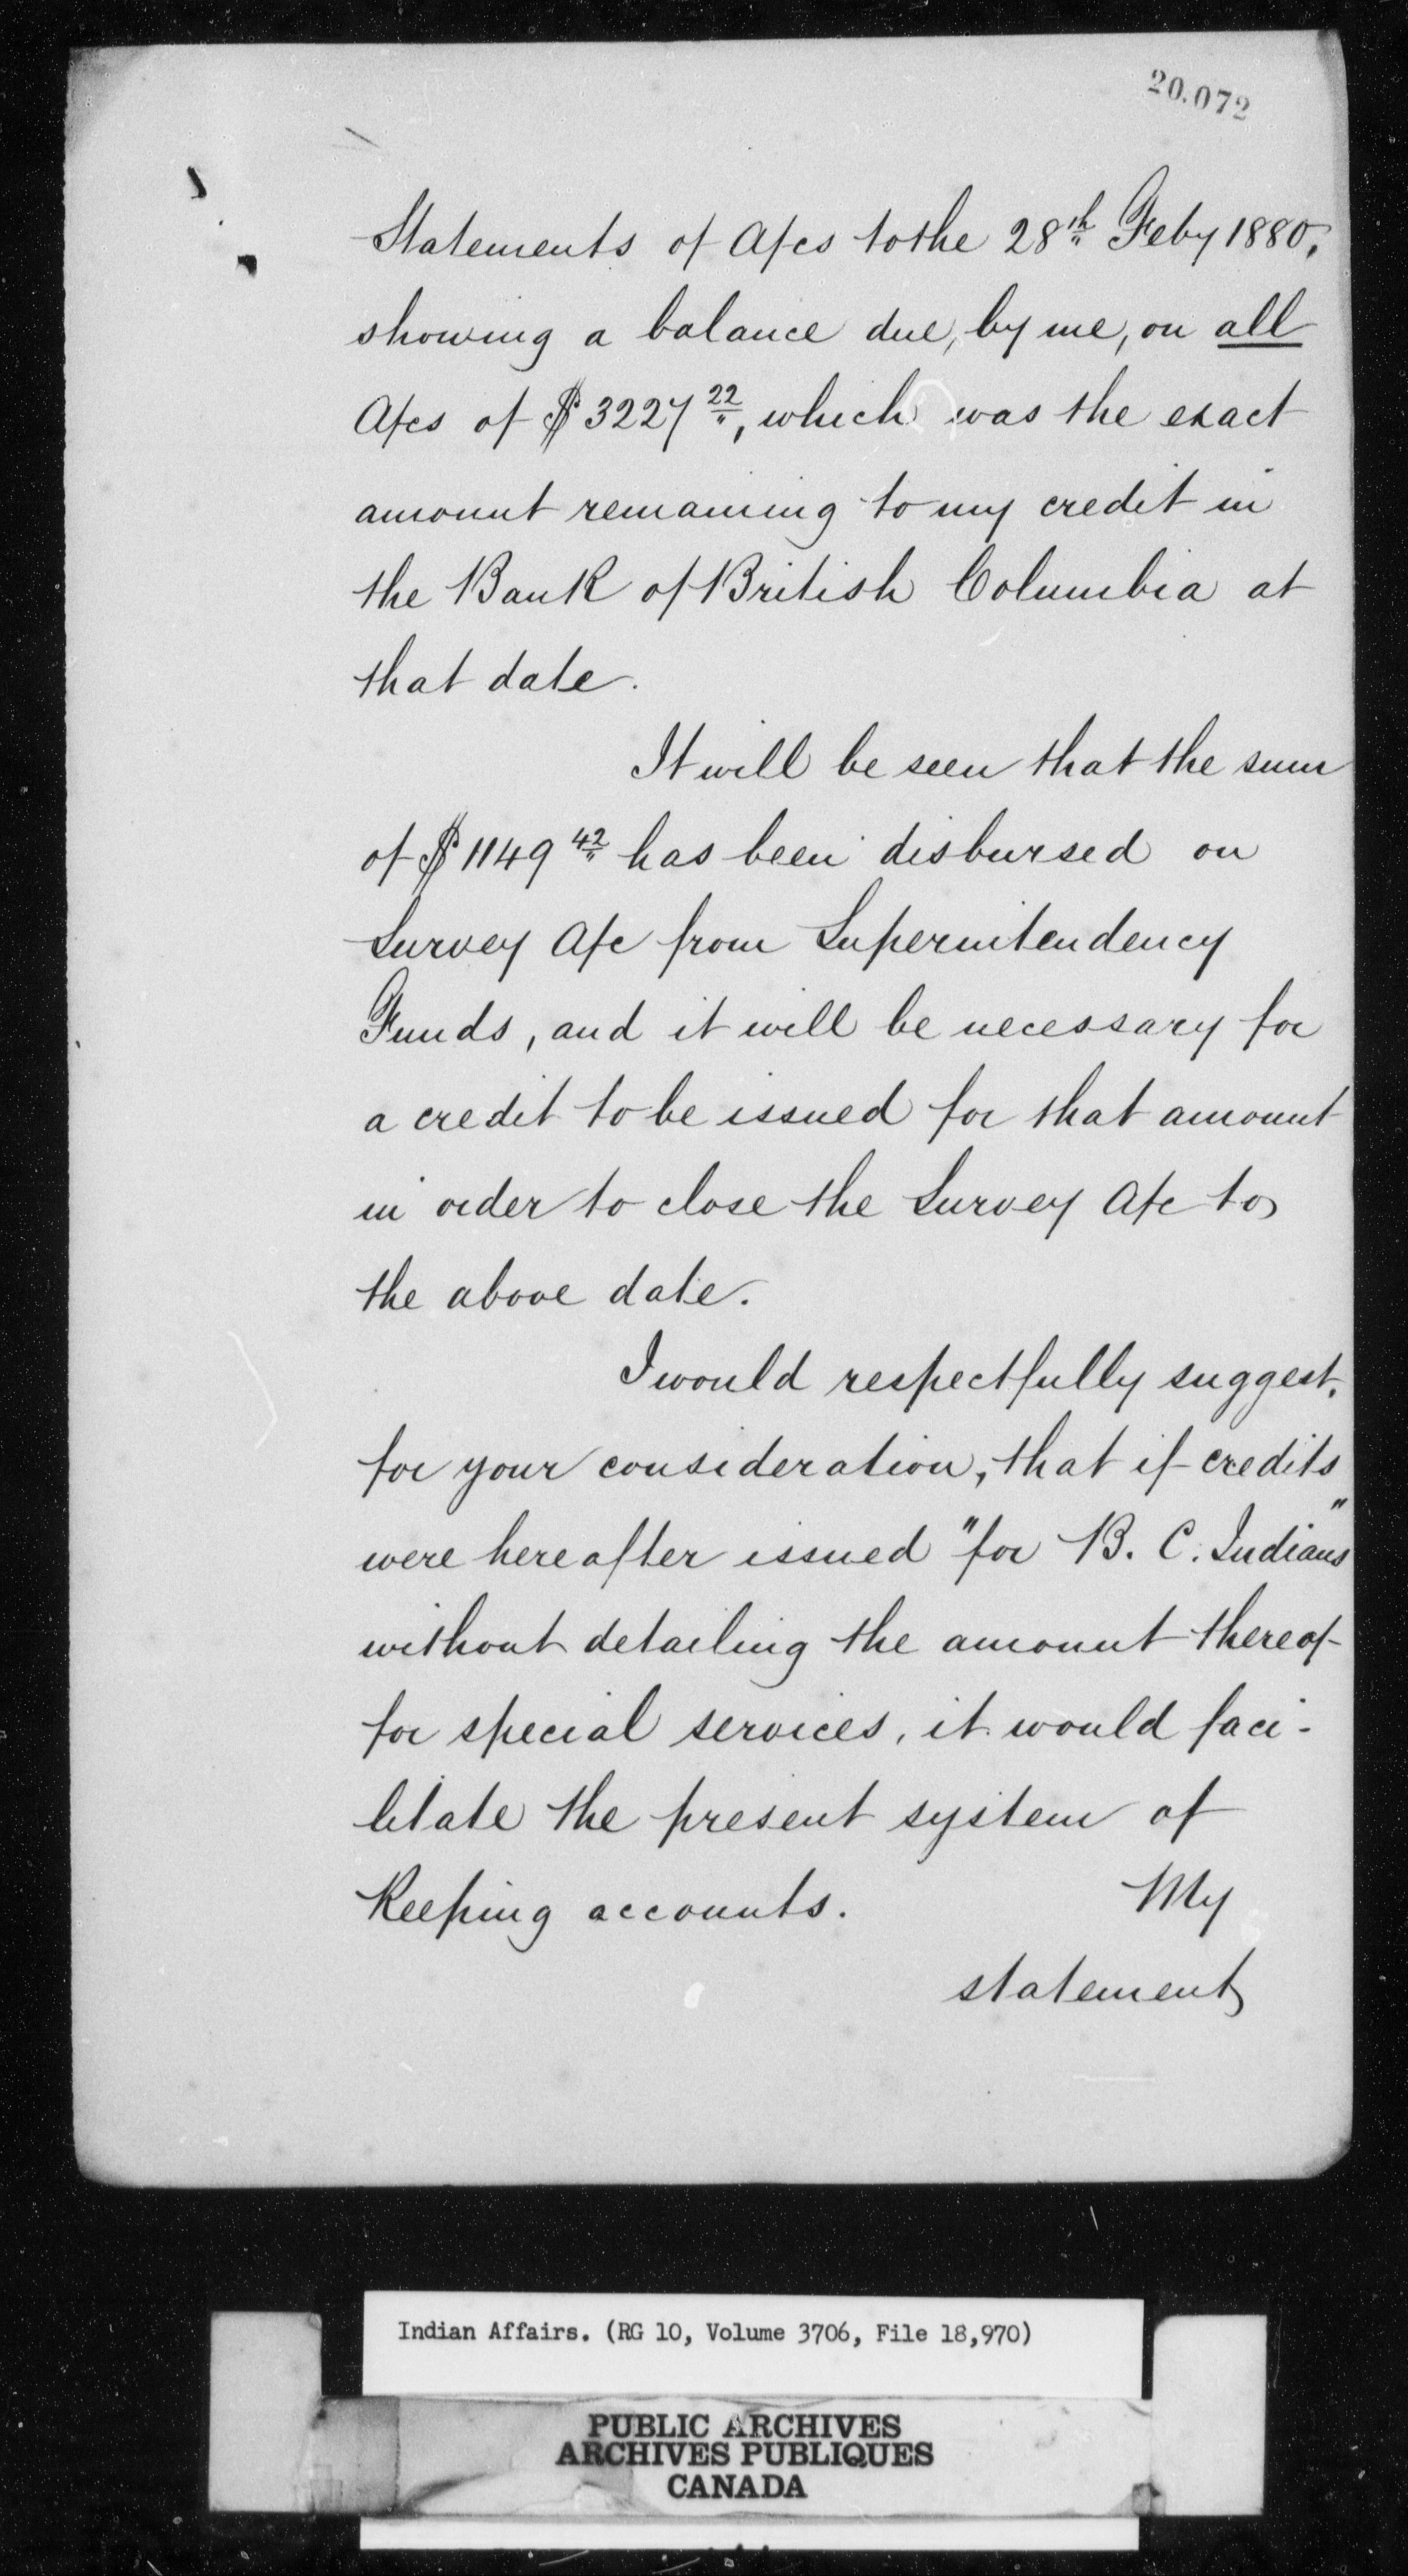 20.072
Statements of A/cs to the 28th Feby 1880,
showing a balance due, by me, on all
A/cs of $3227 22, which was the exact
amount remaining to my credit in
the Bank of British Columbia at
that date.
It will be seen that the sum
of $1149 42 has been disbursed on
Survey A/c from Superintendency
Funds, and it will be necessary for
a credit to be issued for that amount
in order to close the Survey A/c to
the above date.
I would respectfully suggest,
for your consideration, that if credits
were hereafter issued "for B. C. Indians"
without detailing the amount thereof
for special services, it would faci-
litate the present system of
Keeping accounts. My
statement
Indian Affairs. (RG 10, Volume 3706, File 18,970)
PUBLIC ARCHIVES
ARCHIVES PUBLIQUES
CANADA